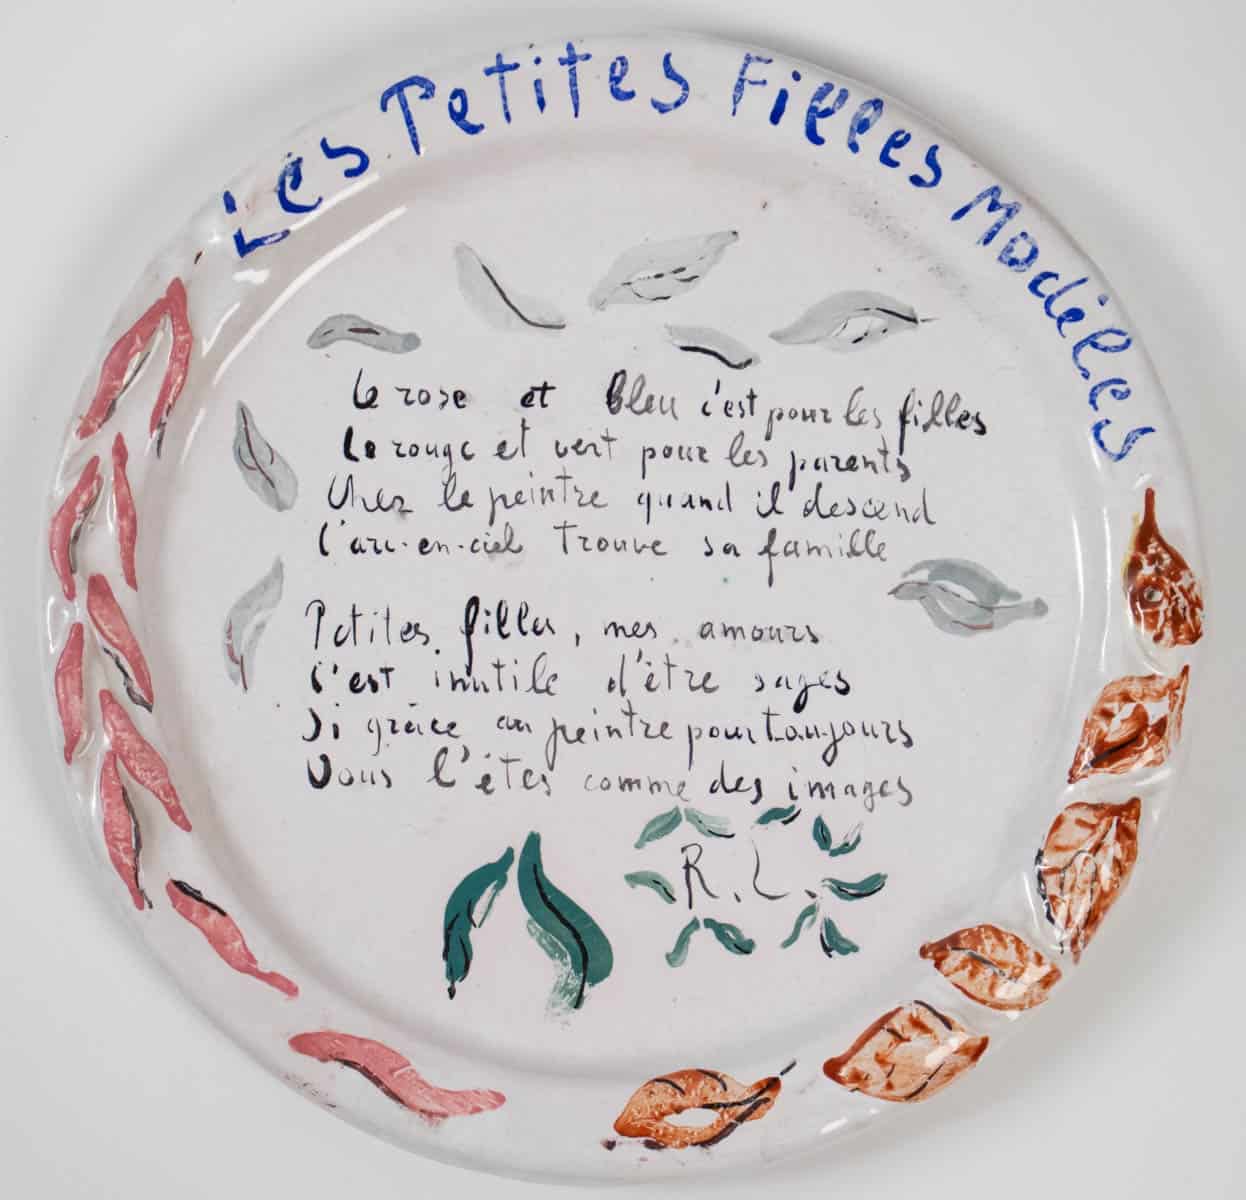 Les Petites Filles Modèles
Le rose et bleu c'est pour les filles
Le rouge et vert pour les parents
Chez le peintre quand il descend
L'arc-en-ciel trouve sa famille
Petites filles, mes amours
C'est inutile d'être sages
Si grâce au peintre pour toujours
Vous l'êtes comme des images
R. L.